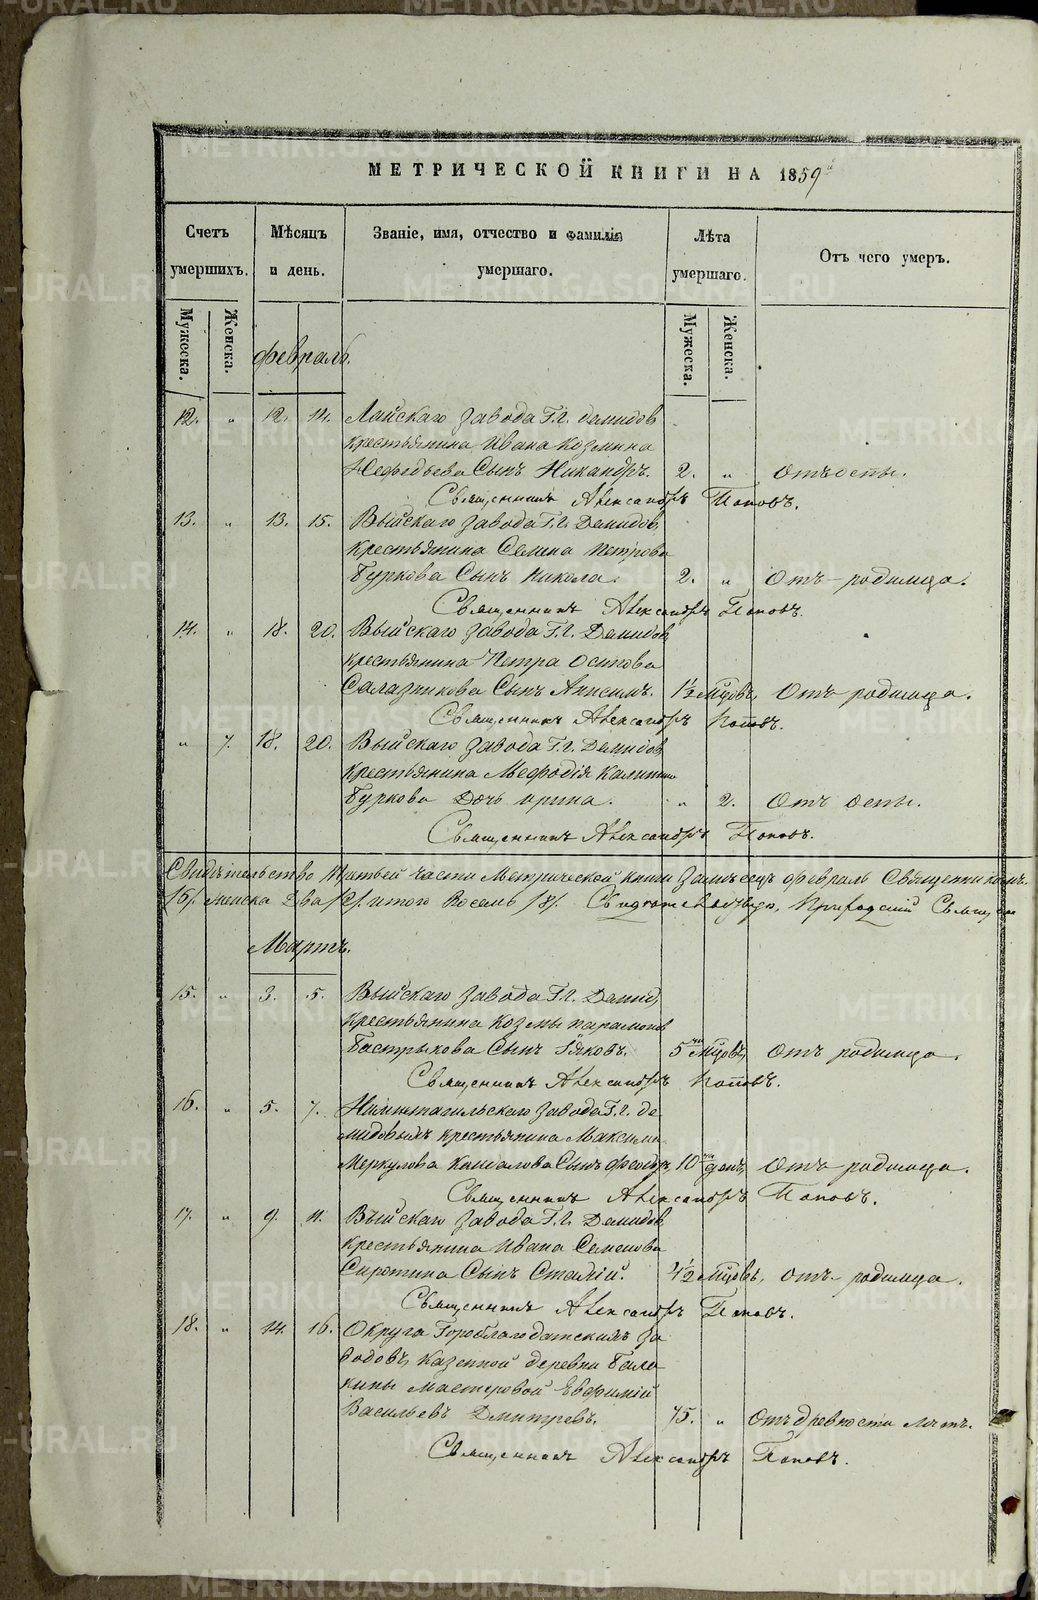 МЕТРИЧЕСКОЙ КНИГИ НА 1859
Счетъ умершихъ. Мѣсяцъ и день. Званіе, имя, отчество и фамилія умершаго. Лѣта умершаго. Отъ чего умеръ.
Мужеска. Женска. Мужеска. Женска.
Февраль.
12. " 12. 14. Лайскаго завода Г.г. Демидов
крестьянина Ивана Козмина
Нефедьева Сынъ Никандръ. 2. " Отъ оспы.
Священникъ Александръ Поповъ.
13. " 13. 15. Выйскаго завода Г.г. Демидов
крестьянина Семена Петрова
Буркова Сынъ Никола. 2. " Отъ родимца.
Священникъ Александръ Поповъ.
14. " 18. 20. Выйскаго завода Г.г. Демидов
крестьянина Петра Осипова
Салазникова Сынъ Анисимъ. 1½ мцовъ, Отъ родимца.
Священникъ Александръ Поповъ.
" 7. 18. 20. Выйскаго завода Г.г. Демидов
крестьянина Мефодія Калинина
Буркова Дочь Ирина. " 2. Отъ оспы.
Священникъ Александръ Поповъ.
Свидѣтельство третьей части Метрической книги за мѣсецъ Февраль Священникомъ
/6/. женска два /2/. итого Восемь /8/. Приходскій Священ
Мартъ.
15. " 3. 5. Выйскаго завода Г.г. Демид
крестьянина Козмы Парамонов
Бастрыкова Сынъ Іяковъ. 5 мцовъ, Отъ родимца.
Священникъ Александръ Поповъ.
16. " 5. 7. Нижнтагильскаго завода Г.г. Де
мидовыхъ крестьянина Максима
Меркулова Сынъ Феодоръ 10 дней, Отъ родимца.
Священникъ Александръ Поповъ.
17. " 9. 11. Выйскаго завода Г.г. Демидов
крестьянина Ивана Семенова
Сиротина Сынъ 4½ мцовъ, Отъ родимца.
Священникъ Александръ Поповъ.
18. " 14. 16. Округа Гороблагодатскихъ за
водовъ, казенной деревни Бала
кины мастеровой Евфимій
Васильевъ Дмитревъ. 75. " Отъ древности лѣтъ.
Священникъ Александръ Поповъ.
METRIKI.GASO-URAL.RU